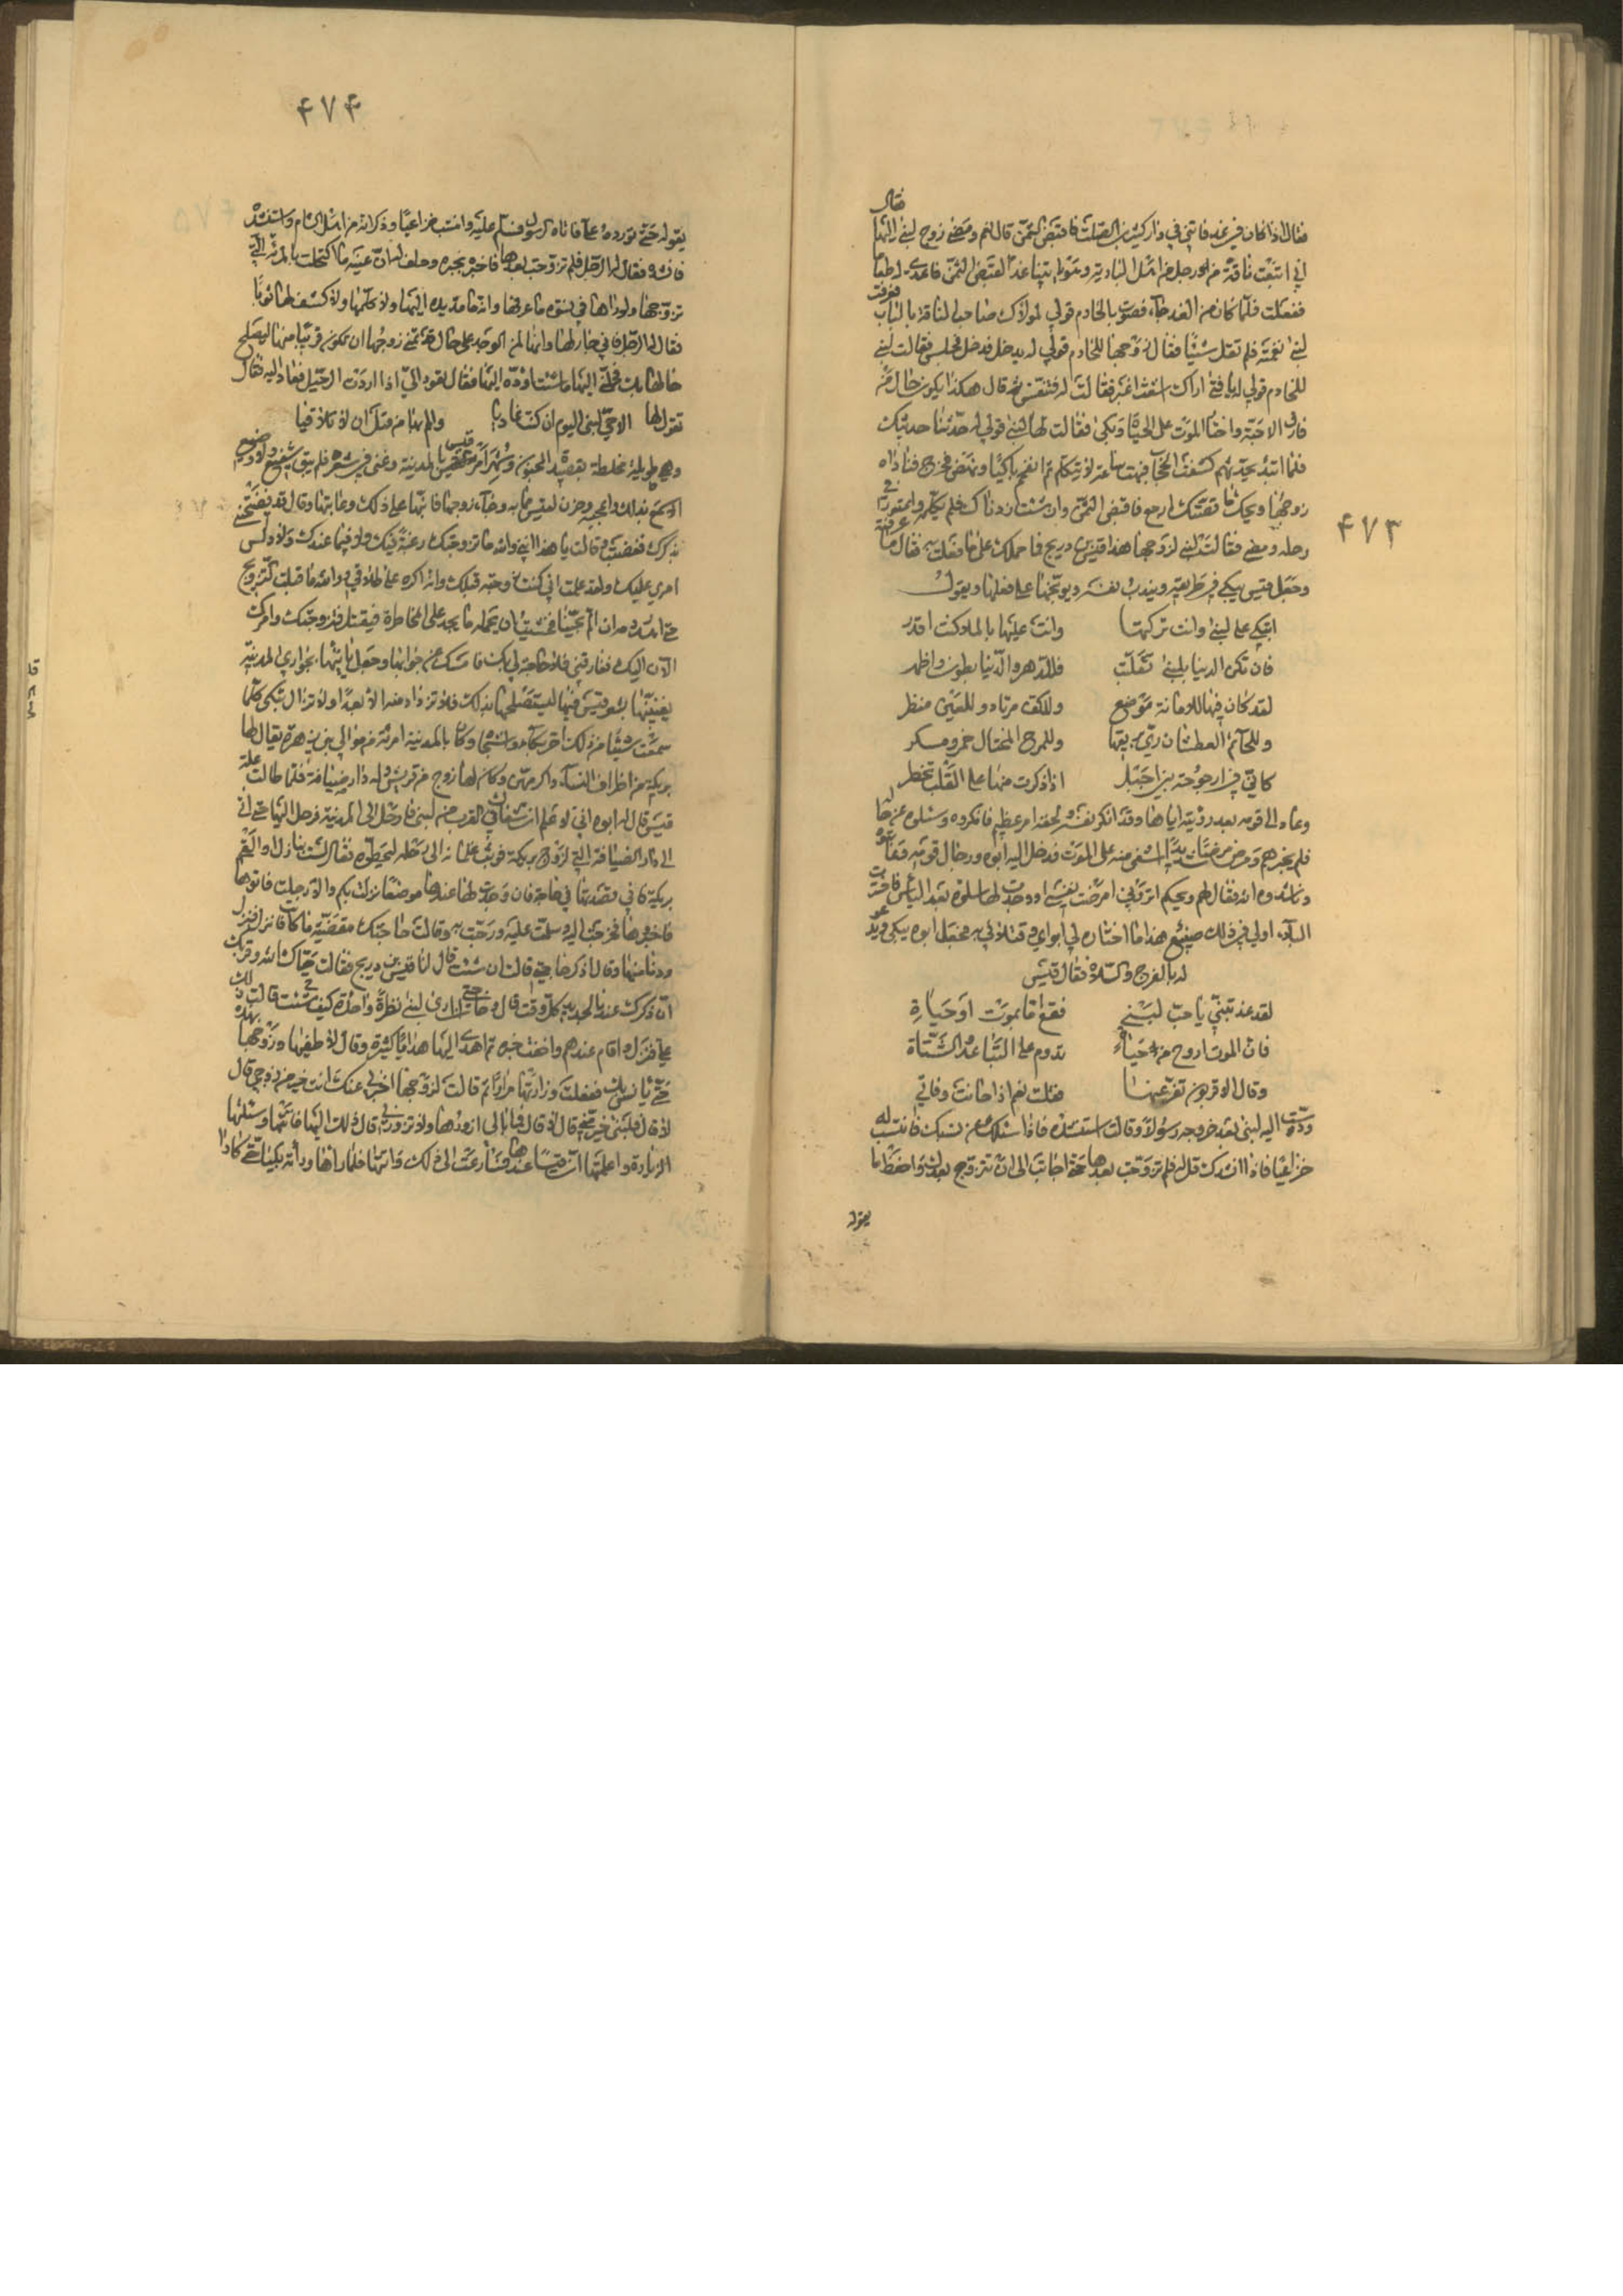 ٤٧٣
فقال
فقال اذا كان في غد فاتني في دار كثير بن الصلت فاقبض الثمن قال نعم ومضى زوج لبنى اليها
اني ابتعت ناقة من رجل من اهل البادية وهو ياتينا غدا لقبض الثمن فاعدي له طعاما
ففعلت فلما كان من الغد جاء فصوت بالخادم قولي لمولاك صاحب الناقة بالباب فعرفت
لبنى نغمته فلم تقل شيئا فقال زوجها للخادم قولي له يدخل فدخل فجلس فقالت لبنى
للخادم قولي له يا فتى اراك اشعث اغبر فقالت له فتنفس ثم قال هكذا يكون حال من
فارق الاحبة واختار الموت على الحياة وبكى فقالت لها لبنى قولي له حدثنا حديثك
فلما ابتدء يحدثهم كشفت الحجاب فبهت ساعة لا يتكلم ثم انفجر باكيا ونهض فخرج فناداه
زوجها ويحك ما قصتك ارجع فاقبض الثمن وان شئت زدناك فلم يكلمه واعتورز في
رحله ومضى فقالت لبنى لزوجها هذا قيس بن دريح فما حملك على ما فعلت به فقال ما عرفته
وجعل قيس يبكي في طريقه ويندب نفسه ويوبخها على فعلها ويقول
اتبكي على لبنى وانت تركتها وانت عليها بالملا كنت اقدر
فان تكن الدنيا بلبنى تقلبت فللدهر والدنيا بطون واظهر
لقد كان فيها للامانة موضع وللكف مرتاد وللعين منظر
وللحائم العطشان ري بريقها وللمرح المختال خمر ومسكر
كاني في ارجوحة بين احبل اذا ذكرت منها على القلب تخطر
وعاد الى قومه بعد رؤيته اياها وقد انكر نفسه ولحقه امر عظيم فانكروه وسئلوه عن حاله
فلم يخبرهم ومرض مرضا شديدا اشفى منه على الموت فدخل اليه ابوه ورجال قومه فعاتبوه
وناشدوه الله فقال لهم ويحكم اتروني امرضت نفسي او وجدت لها سلوة بعد الياس فاخترت
البلاء او لي في ذلك صنيع هذا ما اختاره لي ابواي وقتلاني به فجعل ابوه يبكي ويدعو
له بالفرج والسلاة فقال قيس
لقد عذبتني يا حب لبنى فقع اما بموت او حياة
فان الموت اروح من حياة تدوم على التباعد والشتاة
وقال الاقربون تعز عنها فقلت نعم اذا حانت وفاتي
ودست اليه لبنى بعد خروجه رسولا وقالت استنشده فاذا سئلك من نسبك فانتسب له
خزاعيا فاذا انشدك قل له فلم تزوجت بعدها حتى اجابت الى ان تتزوج بعدك واحفظ ما
يقوله
٤٧٤
يقوله حتى تورده علي فاتاه الرسول فسلم عليه وانتسب خزاعيا وذكر انه من اهل الشام واستنشده
فانشده فقال له الرجل فلم تزوجت بعدها فاخبره بخبره وحلف له ان عينه ما اكتحلت بالمرئة التي
تزوجها ولو راها في نسوة ما عرفها وانه ما مد يده اليها ولا كلمها ولا كشف لها ثوبا
فقال له الرجل فاني جار لها وانها لمن الوجد على حال قد تمنى زوجها ان تكون قريبا منها ليصلح
حالها بك فحملني اليها ما شئت اؤده اليها فقال تعود الي اذا اردت الرحيل فعاد اليه فقال
تقول لها الا حي لبنى اليوم ان كنت غاديا والمم بها من قبل ان لا تلاقيا
وهي طويلة مخلطة بقصيدة المجنون وشهر امر قيس بالمدينة وغنى في شعره فلم يبق شريف ولا وضيع
الا سمع بذلك واعجبه وحزن لقيس مما به وجاء زوجها فانبها على ذلك وعاتبها وقال قد فضحتني
بذكرك فغضبت وقالت يا هذا اني والله ما تزوجتك رغبة فيك ولا فيما عندك ولا دلس
امري عليك ولقد علمت اني كنت زوجته قبلك وانه اكره على طلاقي ووالله ما قبلت التزويج
حتى اهدر دمه ان الم بحينا فخشيت ان يحمله ما يجد على المخاطرة فيقتل فتزوجتك وامرك
الان اليك ففارقني فلا حاجة لي بك فامسك عن جوابها وجعل ياتيها بجواري المدينة
يغنينها بشعر قيس فيها ليستصلحها بذلك فلا تزداد منه الا بعدا ولا تزال تبكي كلما
سمعت شيئا من ذلك احر بكاء واشجاه وكان بالمدينة امرئة من موالي بني زهرة يقال لها
بريكة من اظراف النساء واكرمهن وكان لها زوج من قريش له دار ضيافة فلما طالت علة
قيس قال له ابوه اني لا علم ان شفاك في القرب من لبنى فارحل الى المدينة فرحل اليها حتى اتى
الى دار الضيافة التي لزوج بريكة فوثب غلمانه الى رحله ليحطوه فقال لست نازلا او القى
بريكة فاني قصدتها في حاجة فان وجدت لها عندها موضعا نزلت بكم والا رحلت فاتوها
فاخبروها فخرجت اليه وسلمت عليه ورحبت به وقالت حاجتك مقضية ما كانت فانزل فنزل
ودنا منها وقال اذكر حاجتي قالت ان شئت قال انا قيس بن دريح فقالت حياك الله وقربك
ان ذكرك عندنا لجديد كل وقت قال وحاجتي ان ارى لبنى نظرة واحدة كيف شئت قالت ذلك لك
علي فنزل واقام عندهم واخفت خبره ثم اهدى اليها هدايا كثيرة وقال لاطفيها وزوجها بهذه
حتى يانس بك ففعلت وزارتها مرارا ثم قالت لزوجها اخبرني عنك انت خير من زوجي قال
لا قال فلبنى خير مني قال لا قال فما بالي ازورها ولا تزورني قال ذلك اليها فاتتها وسئلتها
الزيارة واعلمتها ان قيسا عندها فسارعت الى ذلك واتتها فلما راها وراته بكيا حتى كادا